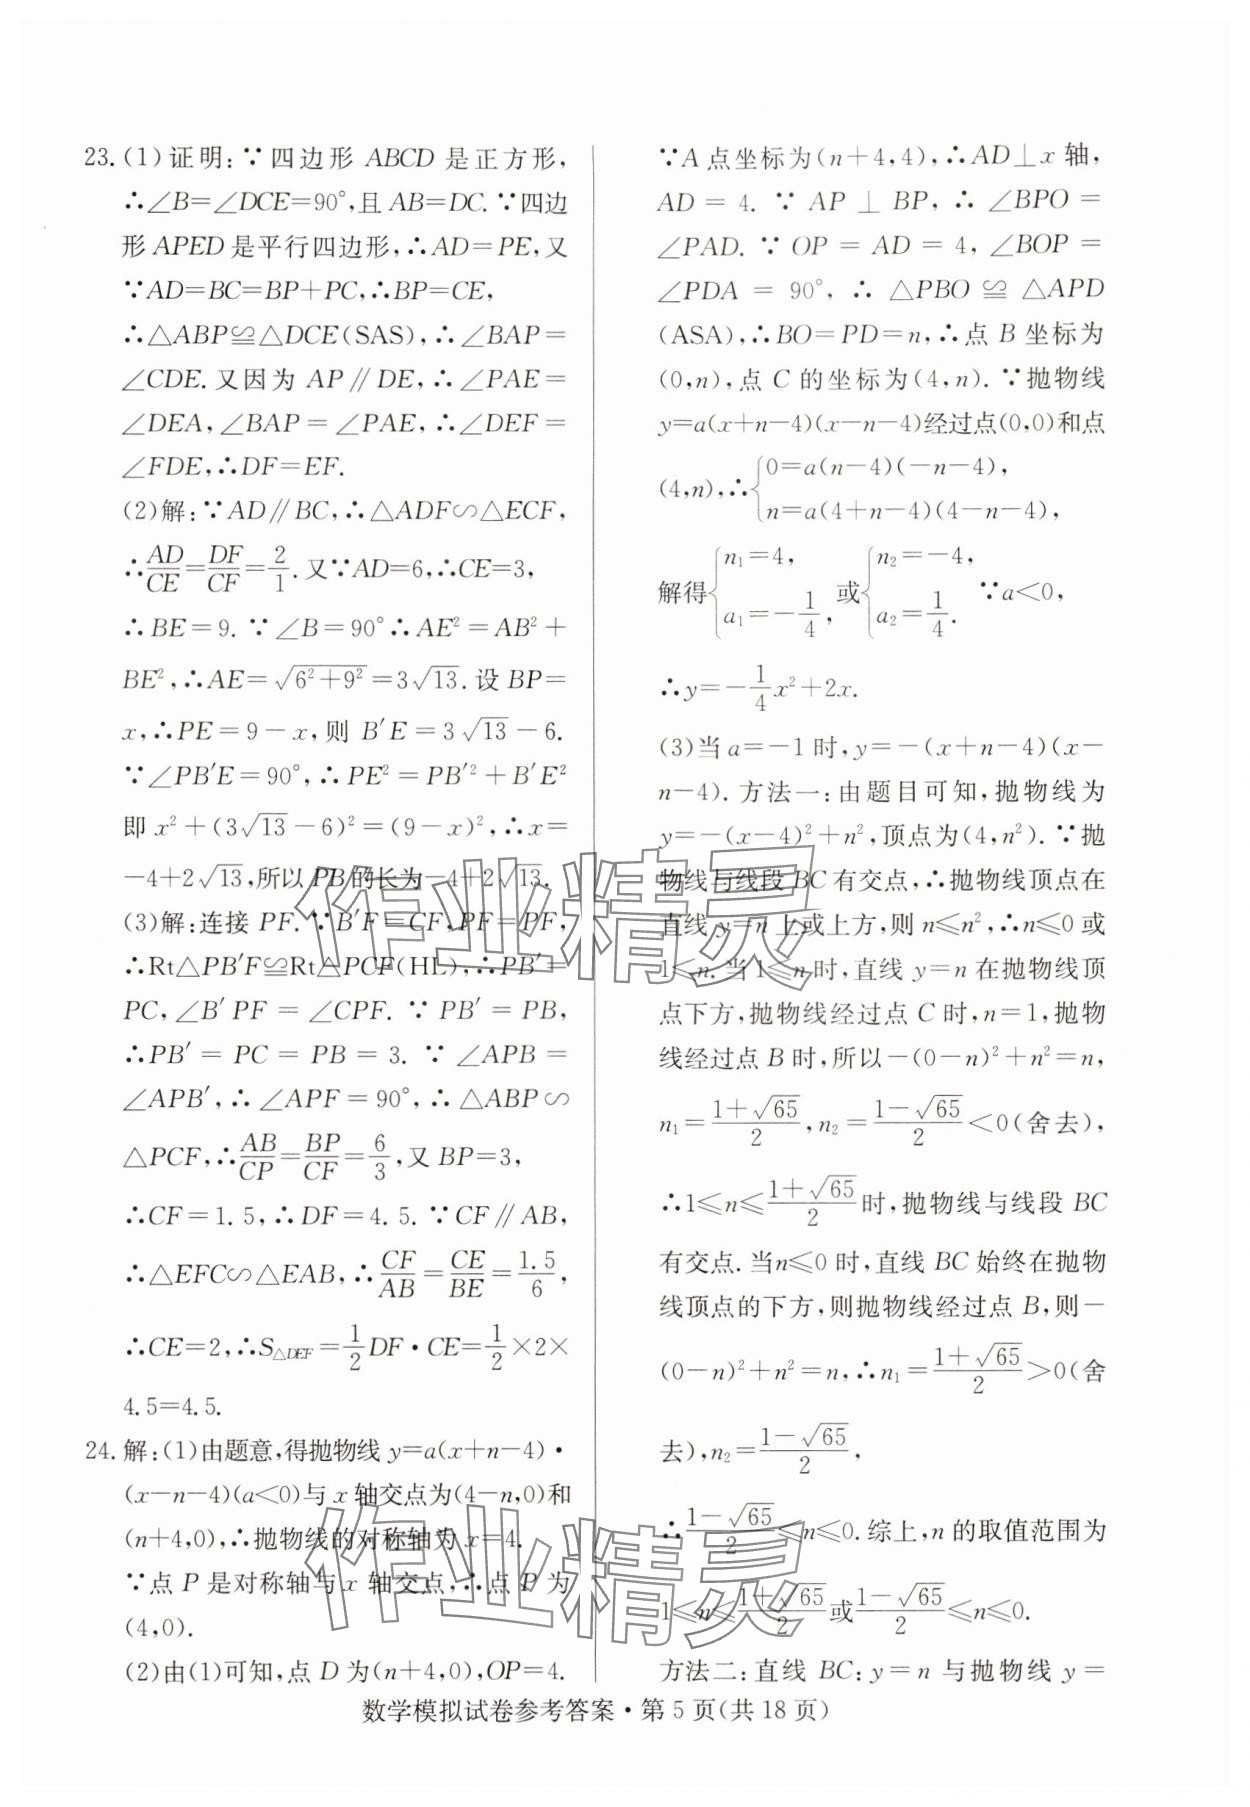 23. (1)证明:∵四边形 ABCD 是正方形,
∴∠B=∠DCE=90°,且 AB=DC.∵四边
形 APED 是平行四边形,∴AD=PE,又
∵AD=BC=BP+PC,∴BP=CE,
∴△ABP≌△DCE(SAS),∴∠BAP=
∠CDE.又因为 AP∥DE,∴∠PAE=
∠DEA,∠BAP=∠PAE,∴∠DEF=
∠FDE,∴DF=EF.
(2)解:∵AD∥BC,∴△ADF∽△ECF,
∴AD/CE=DF/CF=2/1.又∵AD=6,∴CE=3,
∴BE=9.∵∠B=90°∴AE²=AB²+
BE²,∴AE=√(6²+9²)=3√13.设 BP=
x,∴PE=9-x,则 B′E=3√13-6.
∵∠PB′E=90°,∴PE²=PB′²+B′E²
即 x²+(3√13-6)²=(9-x)²,∴x=
-4+2√13,所以 PB 的长为-4+2√13.
(3)解:连接 PF.∵B′F=CF,PF=PF,
∴Rt△PB′F≌Rt△PCF(HL),∴PB′=
PC,∠B′PF=∠CPF.∵PB′=PB,
∴PB′=PC=PB=3.∵∠APB=
∠APB′,∴∠APF=90°,∴△ABP∽
△PCF,∴AB/CP=BP/CF=6/3,又 BP=3,
∴CF=1.5,∴DF=4.5.∵CF∥AB,
∴△EFC∽△EAB,∴CF/AB=CE/BE=1.5/6,
∴CE=2,∴S△DEF=1/2DF·CE=1/2×2×
4.5=4.5.
24. 解:(1)由题意,得抛物线 y=a(x+n-4)·
(x-n-4)(a<0)与 x 轴交点为(4-n,0)和
(n+4,0),∴抛物线的对称轴为 x=4.
∵点 P 是对称轴与 x 轴交点,∴点 P 为
(4,0).
(2)由(1)可知,点 D 为(n+4,0),OP=4.
∵A 点坐标为(n+4,4),∴AD⊥x 轴,
AD=4.∵AP⊥BP,∴∠BPO=
∠PAD.∵OP=AD=4,∠BOP=
∠PDA=90°,∴△PBO≌△APD
(ASA),∴BO=PD=n,∴点 B 坐标为
(0,n),点 C 的坐标为(4,n).∵抛物线
y=a(x+n-4)(x-n-4)经过点(0,0)和点
(4,n),∴{0=a(n-4)(-n-4),
n=a(4+n-4)(4-n-4),
解得{n₁=4, a₁=-1/4, 或{n₂=-4, a₂=1/4. ∵a<0,
∴y=-1/4x²+2x.
(3)当 a=-1 时,y=-(x+n-4)(x-
n-4).方法一:由题目可知,抛物线为
y=-(x-4)²+n²,顶点为(4,n²).∵抛
物线与线段 BC 有交点,∴抛物线顶点在
直线 y=n 上或上方,则 n≤n²,∴n≤0 或
1≤n.当 1≤n 时,直线 y=n 在抛物线顶
点下方,抛物线经过点 C 时,n=1,抛物
线经过点 B 时,所以-(0-n)²+n²=n,
n₁=(1+√65)/2,n₂=(1-√65)/2<0(舍去),
∴1≤n≤(1+√65)/2时,抛物线与线段 BC
有交点.当n≤0 时,直线 BC 始终在抛物
线顶点的下方,则抛物线经过点 B,则-
(0-n)²+n²=n,∴n₁=(1+√65)/2>0(舍
去),n₂=(1-√65)/2,
∴(1-√65)/2≤n≤0.综上,n 的取值范围为
1≤n≤(1+√65)/2或(1-√65)/2≤n≤0.
方法二:直线 BC:y=n 与抛物线 y=
数学模拟试卷参考答案·第 5 页(共 18 页)
作业精灵
作业精灵